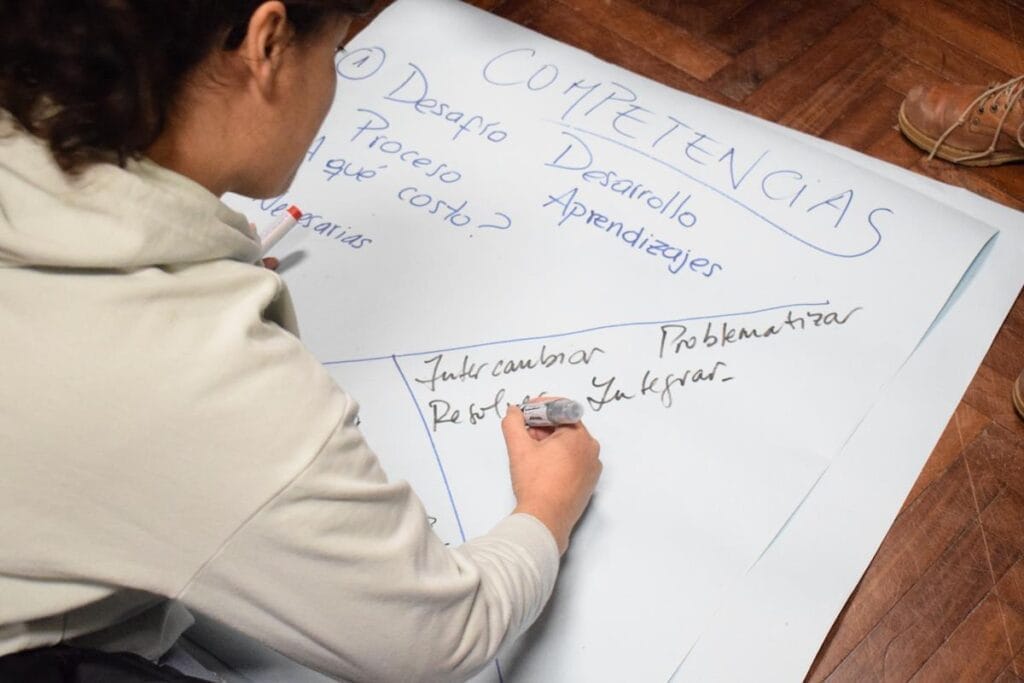 COMPETENCIAS
① Desafío
Desarrollo
Proceso
Aprendizajes
A qué costo?
Necesarias
Intercambiar Problematizar
Resolver Integrar-